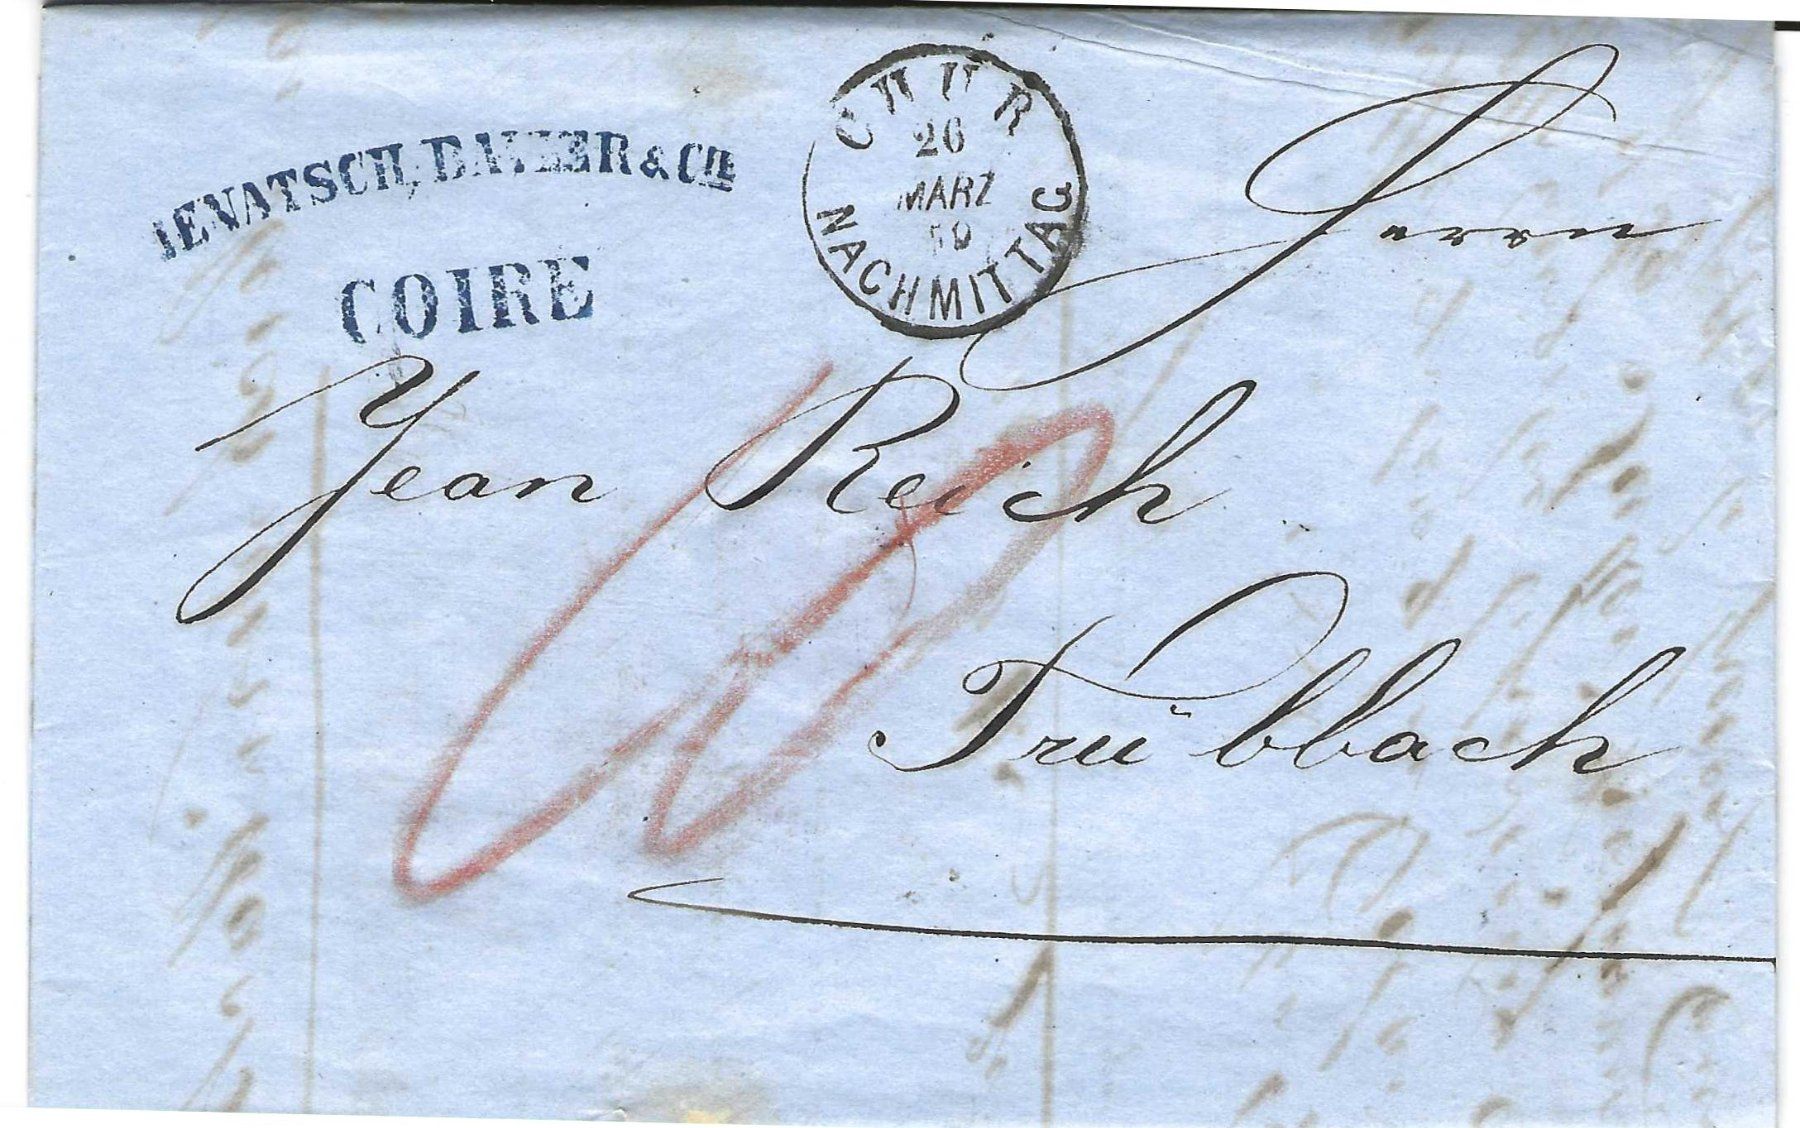 IENATSCH, BAVIER & CIE
COIRE
CHUR
26
MARZ
59
NACHMITTAG
Herrn
Jean Reich
10
Trübbach